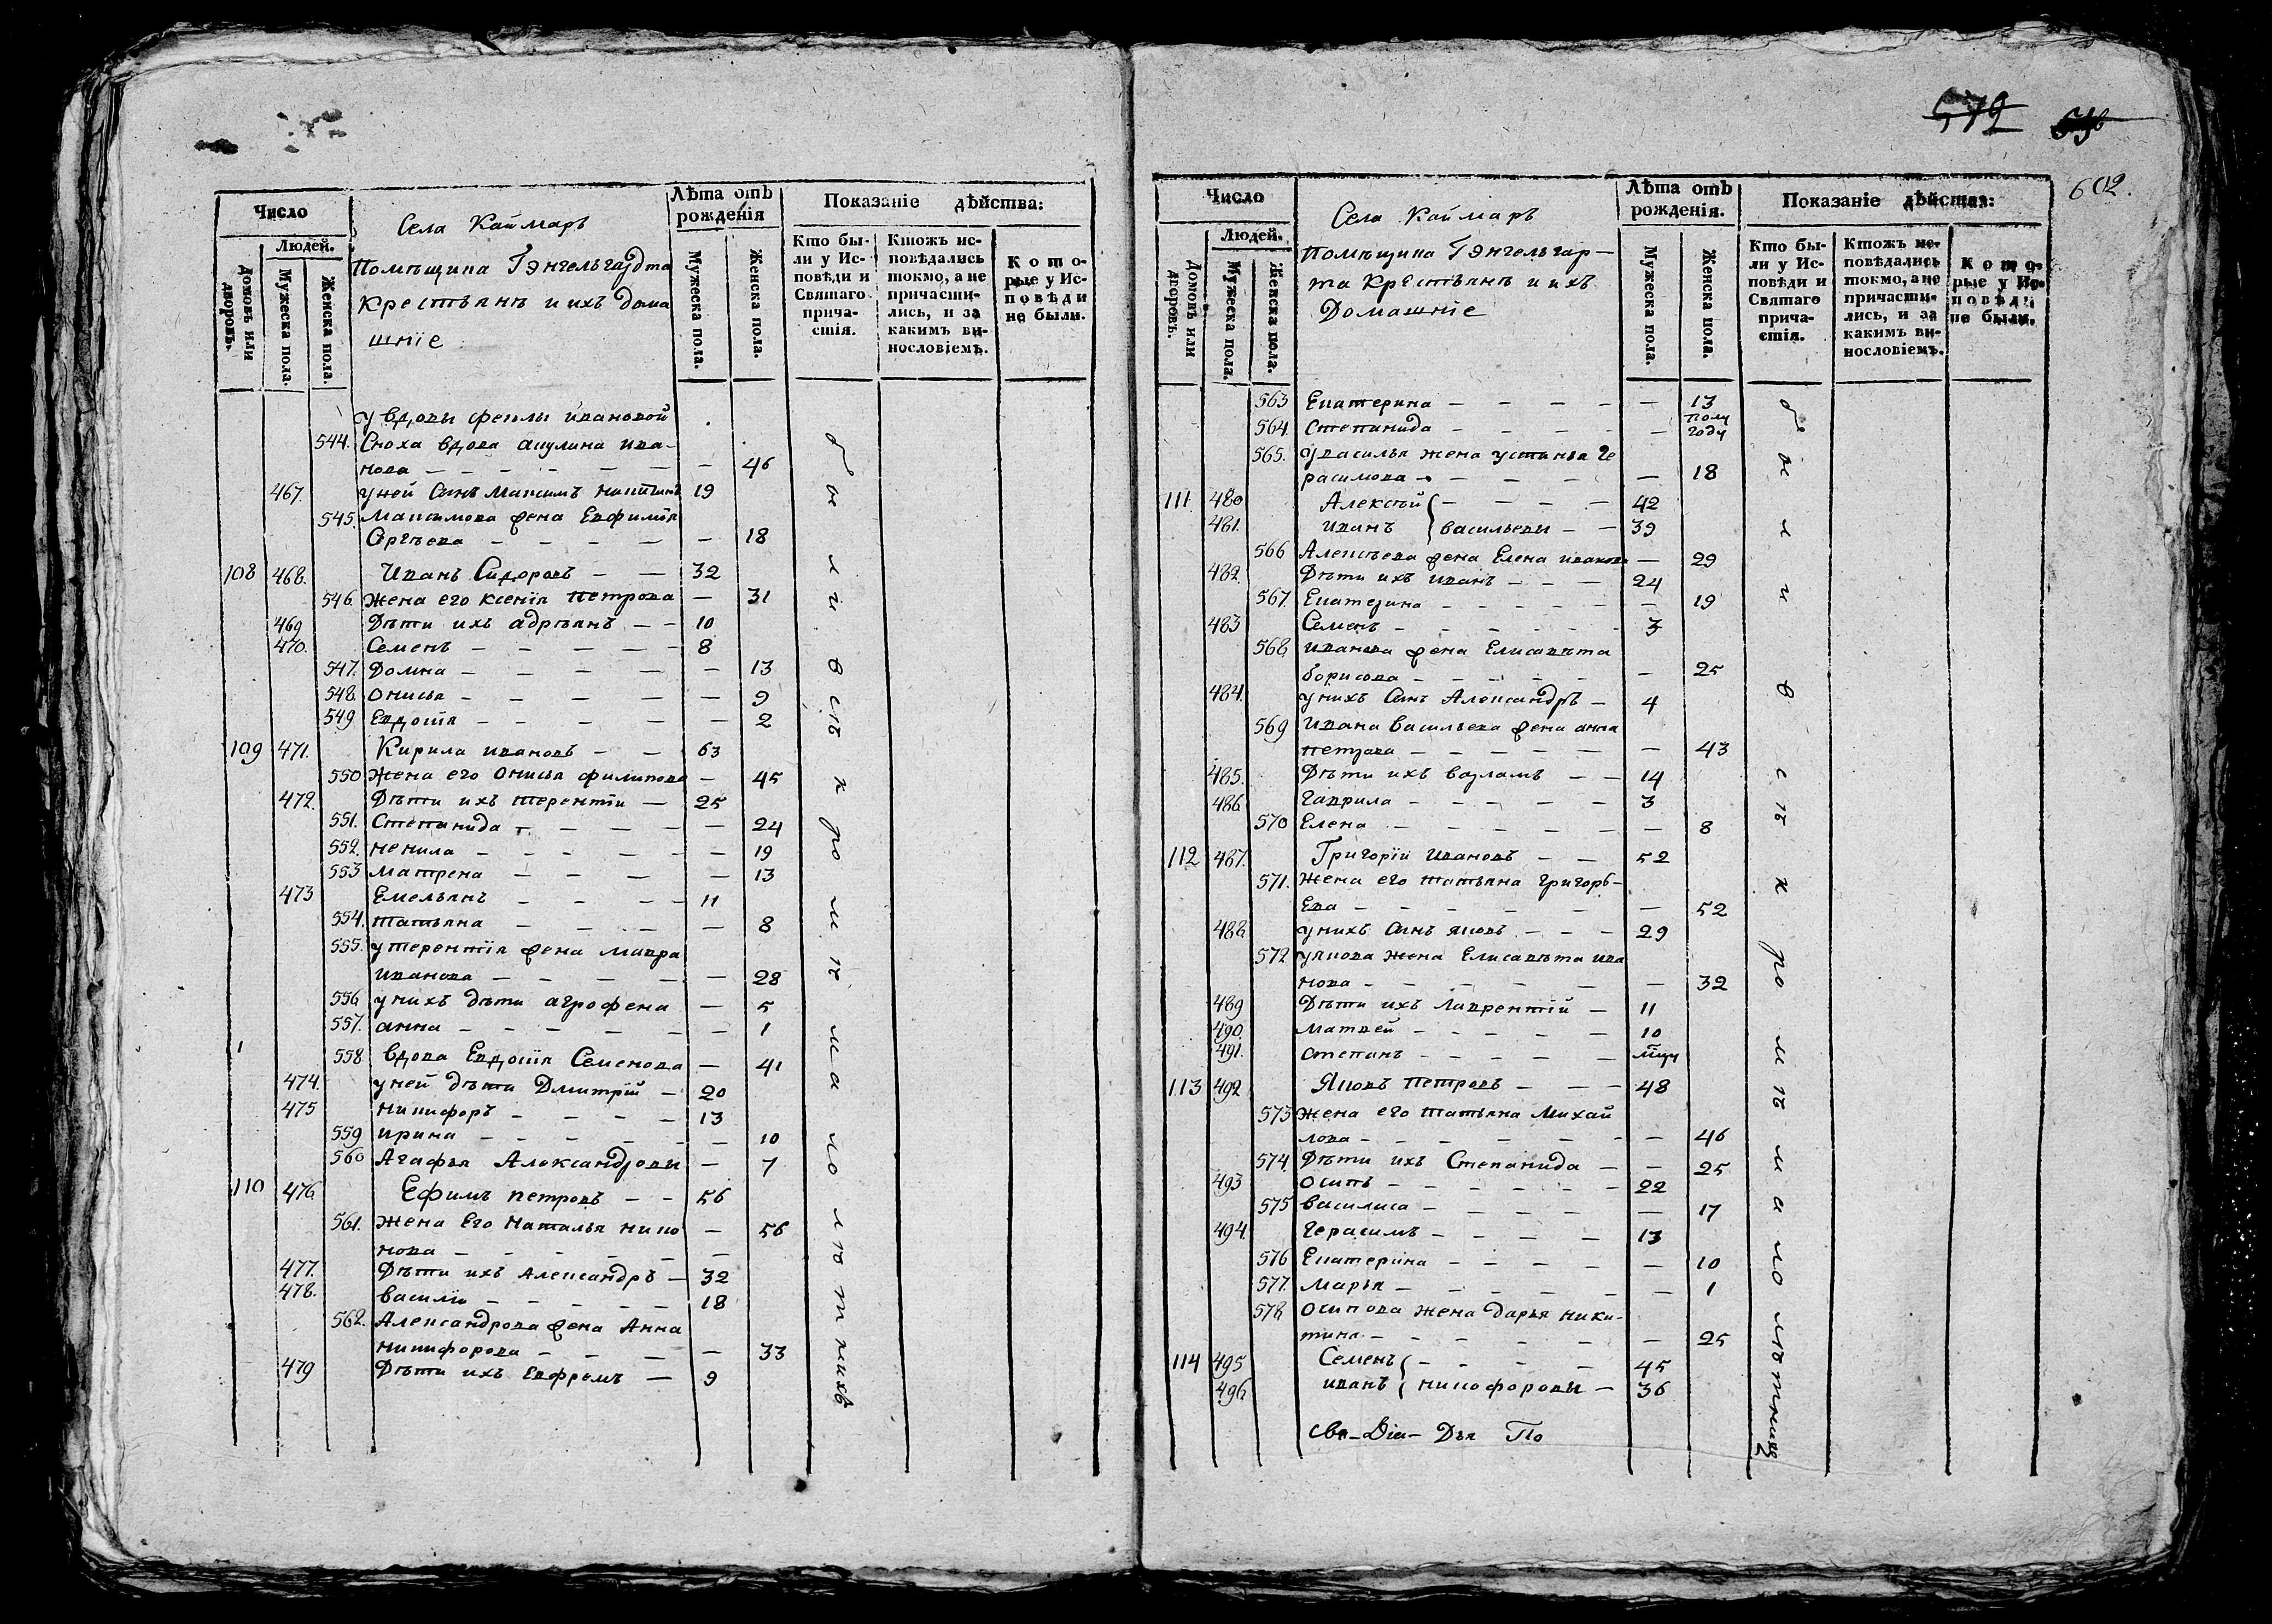 Число
Людей.
Домовъ или дворовъ.
Мужеска пола.
Женска пола.
Села Каймаръ
Помѣщика Гэнгельгардта
Крестьянъ и ихъ дома
шніе
Лѣта отъ рожденія
Мужеска пола.
Женска пола.
Показаніе дѣйства:
Кто бы-
ли у Ис-
повѣди и
Святаго
прича-
стія.
Ктожъ ис-
повѣдались
токмо, а не
причасти-
лись, и за
какимъ ви-
нословіемъ.
Кото-
рые у Ис-
повѣди
не были.
у вдовы феклы ивановой
544. Сноха вдова акулина ива-
нова — 46
467. у ней Сынъ Максимъ никитинъ 19
545. Максимова жена Евфимія
Сергѣева — 18
108 468. Иванъ Сидоровъ — 32
546. Жена его ксенія петрова — 31
469 Дѣти ихъ адрѣянъ — 10
470. Семенъ — 8
547. Домна — 13
548. Онисья — 9
549 Евдокія — 2
109 471. Кирила ивановъ — 63
550 Жена его Онисья филипова — 45
472. Дѣти ихъ терентіи — 25
551. Степанида — 24
552. ненила — 19
553 матрена — 13
473 Емельянъ — 11
554. татьяна — 8
555. у терентія жена мавра
иванова — 28
556 у нихъ дѣти агрофена — 5
557. анна — 1
558 вдова Евдокія Семенова — 41
474. у ней дѣти Дмитрій — 20
475 никифоръ — 13
559 ирина — 10
560 Агафья Александровы — 7
110 476 Ефимъ петровъ — 56
561. жена Его Наталья нико — 56
нова —
477. Дѣти ихъ Александръ — 32
478. василій — 18
562. Александрова жена Анна
никифорова — 33
479 Дѣти ихъ Евфремъ — 9
были всѣ кромѣ малолѣтнихъ
579
602.
Число
Людей.
Домовъ или дворовъ.
Мужеска пола.
Женска пола.
Села Каймаръ
помѣщика Гэнгельгар—
та Крестьянъ и ихъ
Домашніе
Лѣта отъ рожденія.
Мужеска пола.
Женска пола.
Показаніе дѣйства:
Кто бы-
ли у Ис-
повѣди и
Святаго
прича-
стія.
Ктожъ ис-
повѣдались
токмо, а не
причасти-
лись, и за
какимъ ви-
нословіемъ.
Кото-
рые у Ис-
повѣди
не были.
563 Екатерина — 13
564. Степанида — полу году
565. у василья жена устинья Ге
расимова — 18
111 480 Алексѣй — 42
481. иванъ васильевы — 39
566 Алексѣева жена Елена иванова — 29
482. Дѣти ихъ иванъ — 24
567. Екатерина — 19
483 Семенъ — 3
568 иванова жена Елисавѣта
борисова — 25
484. у нихъ Сынъ Александръ — 4
569 ивана васильева жена анна
петрова — 43
485. Дѣти ихъ варламъ — 14
486. гаврила — 3
570 Елена — 8
112 487. Григорій ивановъ — 52
571. Жена его татьяна григорь—
Ева — 52
488. у нихъ Сынъ яковъ — 29
572 у якова жена Елисавѣта ива
нова — 32
489 Дѣти ихъ лаврентій — 11
490. матвей — 10
491. степанъ —
113 492 Яковъ петровъ — 48
573 жена его татьяна Михай
лова — 46
574. Дѣти ихъ Степанида — 25
493 осипъ — 22
575 василиса — 17
494. герасимъ — 13
576 Екатерина — 10
577. марья — 1
578 осипова жена дарья ники-
тина — 25
114 495 Семенъ — 45
496. иванъ никофоровы — 36
были всѣ кромѣ малолѣтнихъ
Свя— Діа— Дья По